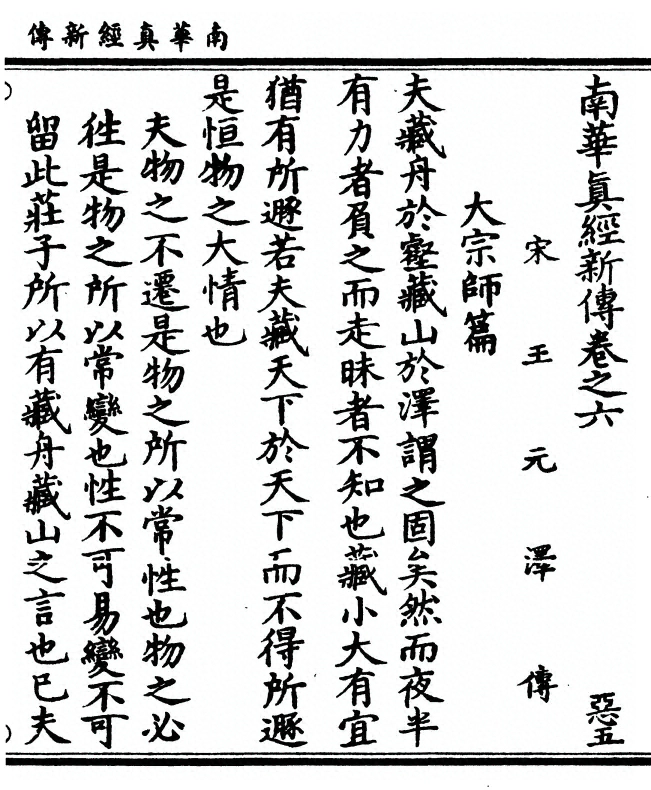 南華真經新傳
南華眞經新傳卷之六 惡五
宋王元澤傳
大宗師篇
夫藏舟於壑藏山於澤謂之固矣然而夜半
有力者負之而走昧者不知也藏小大有宜
猶有所遯若夫藏天下於天下而不得所遯
是恒物之大情也
夫物之不遷是物之所以常性也物之必
徃是物之所以常變也性不可易變不可
留此莊子所以有藏舟藏山之言也已夫